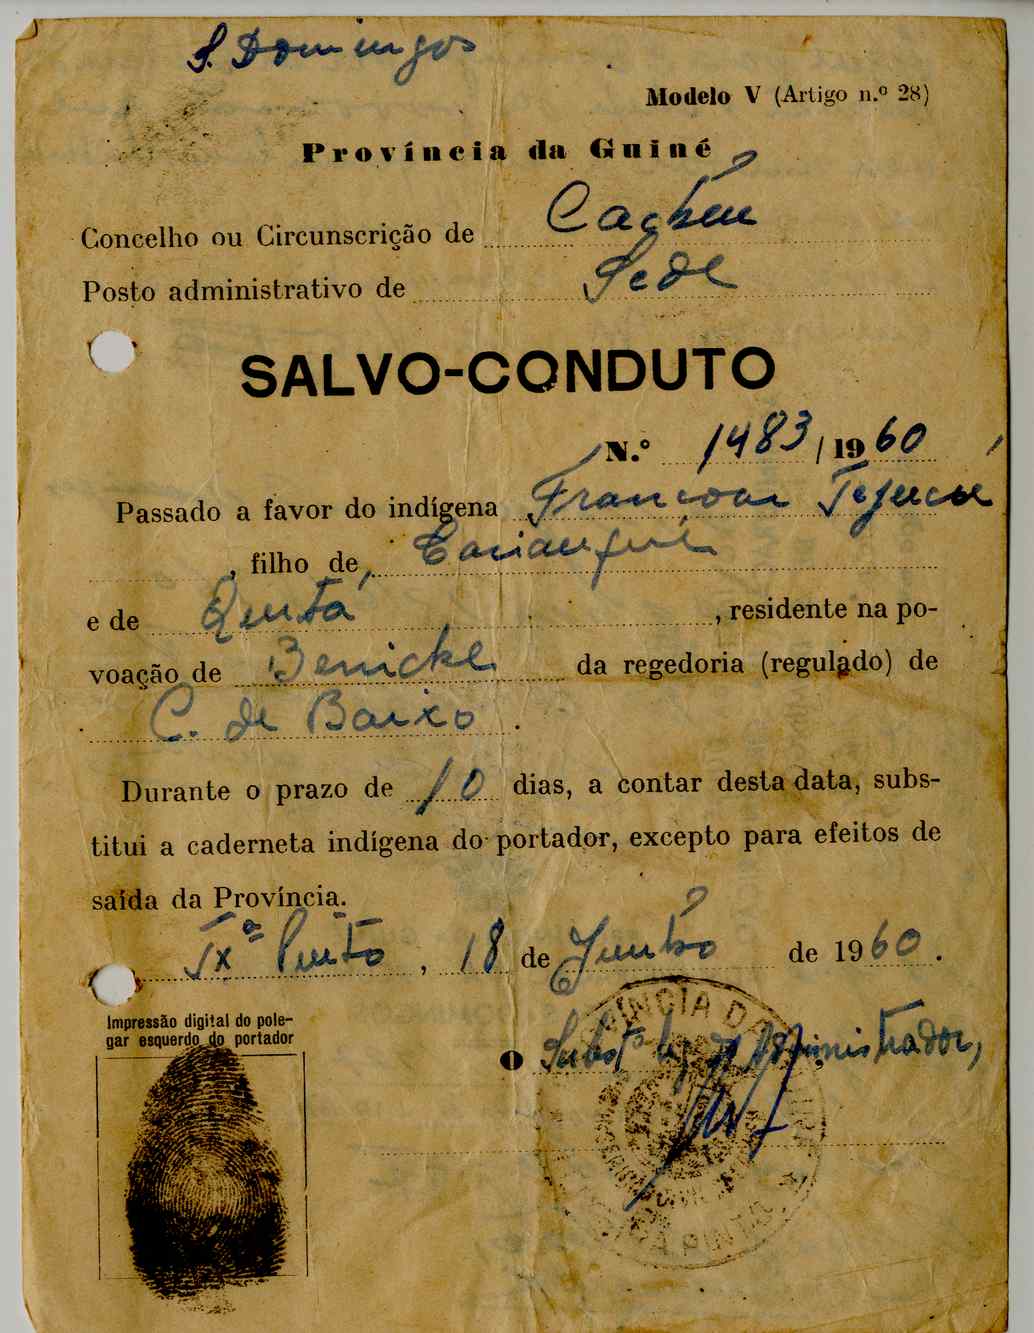 S. Domingos
Modelo V (Artigo n.º 28)
Província da Guiné
Concelho ou Circunscrição de Cacheu
Posto administrativo de Sede
SALVO-CONDUTO
N.º 1483/1960
Passado a favor do indígena
, filho de,
e de Quintá, residente na po-
voação de Benicke da regedoria (regulado) de
C. de Baixo.
Durante o prazo de 10 dias, a contar desta data, subs-
titui a caderneta indígena do portador, excepto para efeitos de
saída da Província.
Tx.ª Pinto, 18 de Junho de 1960.
Impressão digital do pole-
gar esquerdo do portador
O Subst.º Administrador,